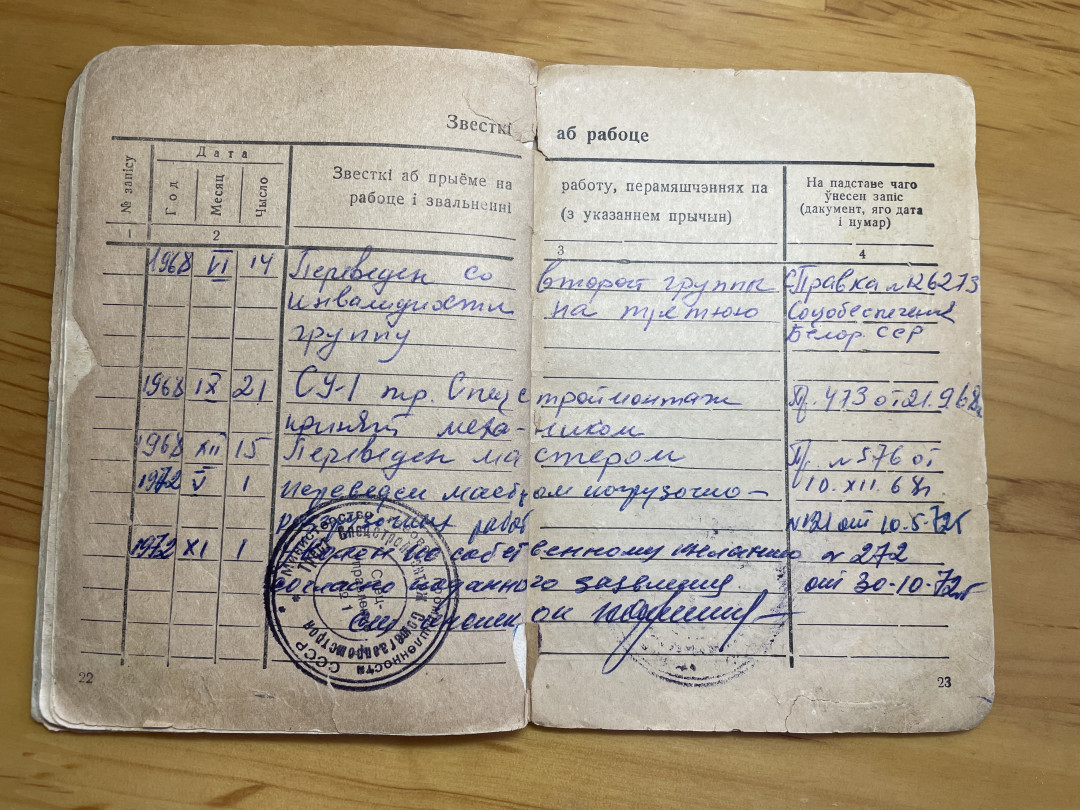 Звесткі аб рабоце
№ запісу
Дата
Год
Месяц
Чысло
Звесткі аб прыёме на работу, перамяшчэннях па
рабоце і звальненні (з указаннем прычын)
На падставе чаго
ўнесен запіс
(дакумент, яго дата
і нумар)
1 2 3 4
1968 VI 14 Переведен со второй группы Справка №126273
инвалидности на третюю Соцобеспечения
группу Белор. ССР
1968 IX 21 СУ-1 тр. Спецстроймонтаж Пр. 473 от 21.9.68г.
принят механиком
1968 XII 15 Переведен мастером Пр. №576 от
1972 V 1 переведен мастером погрузочно- 10.XII.68г.
разгрузочных работ №121 от 10.5.72г
1972 XI 1 по собственному желанию №272
согласно поданного заявления. от 30-10-72г
Министерство газовой промышленности СССР
22
23